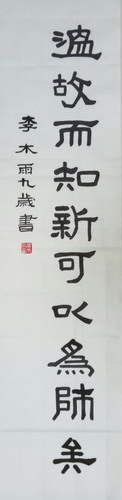 溫故而知新可以為師矣
李木雨九歲書